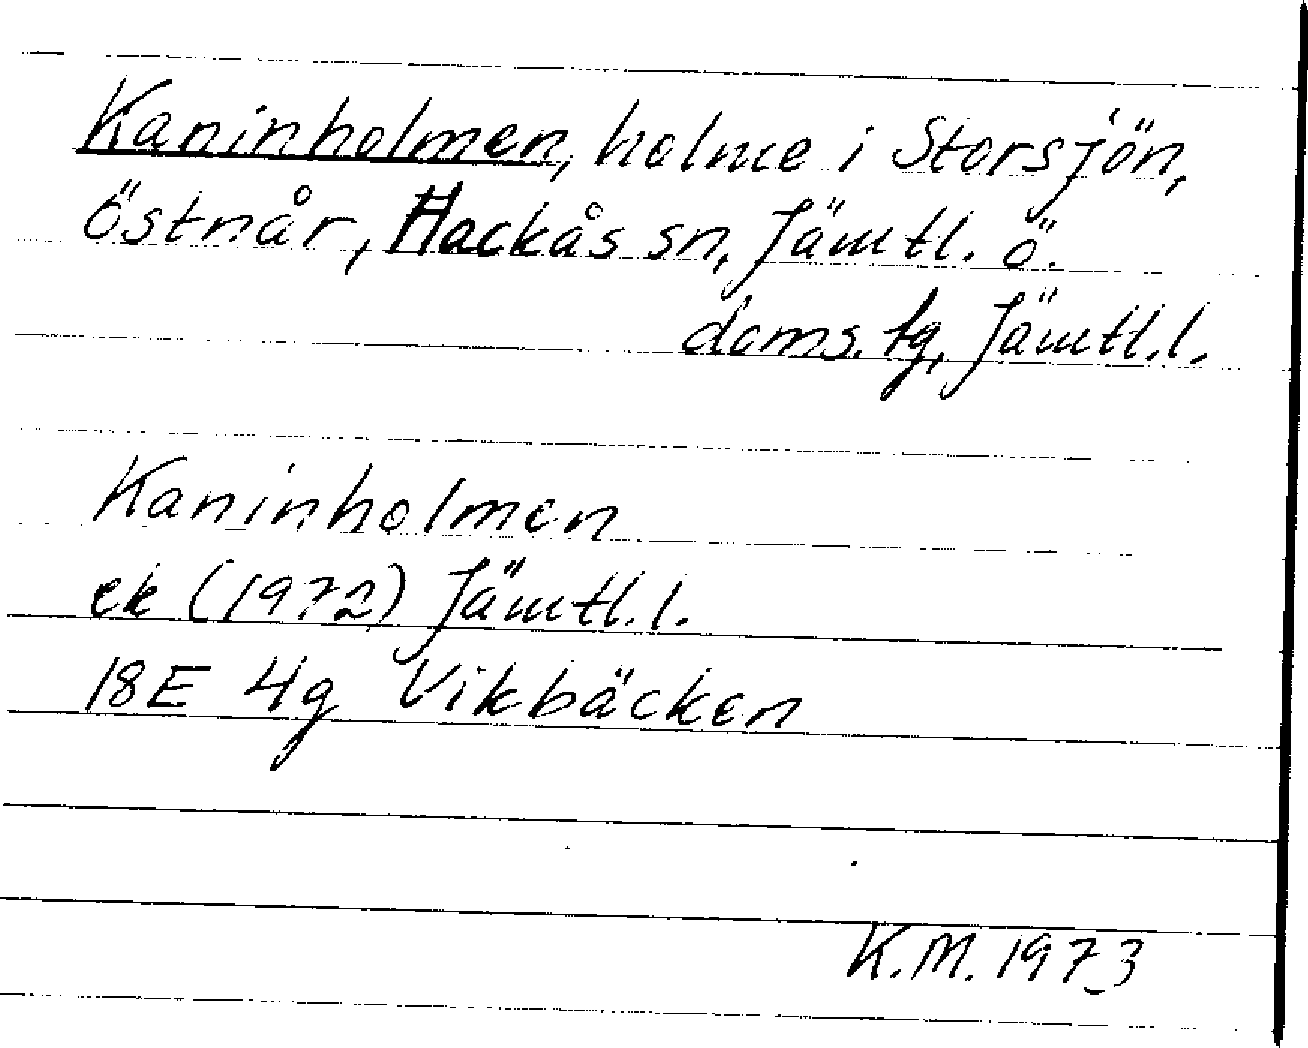 Kaninholmen, holme i Storsjön,
östnår, Hackås sn, Jämtl. ö.
doms. tg, Jämtl.l.
Kaninholmen
ek (1972) Jämtl.l.
18E 4g Vikbäcken
K.M. 1973